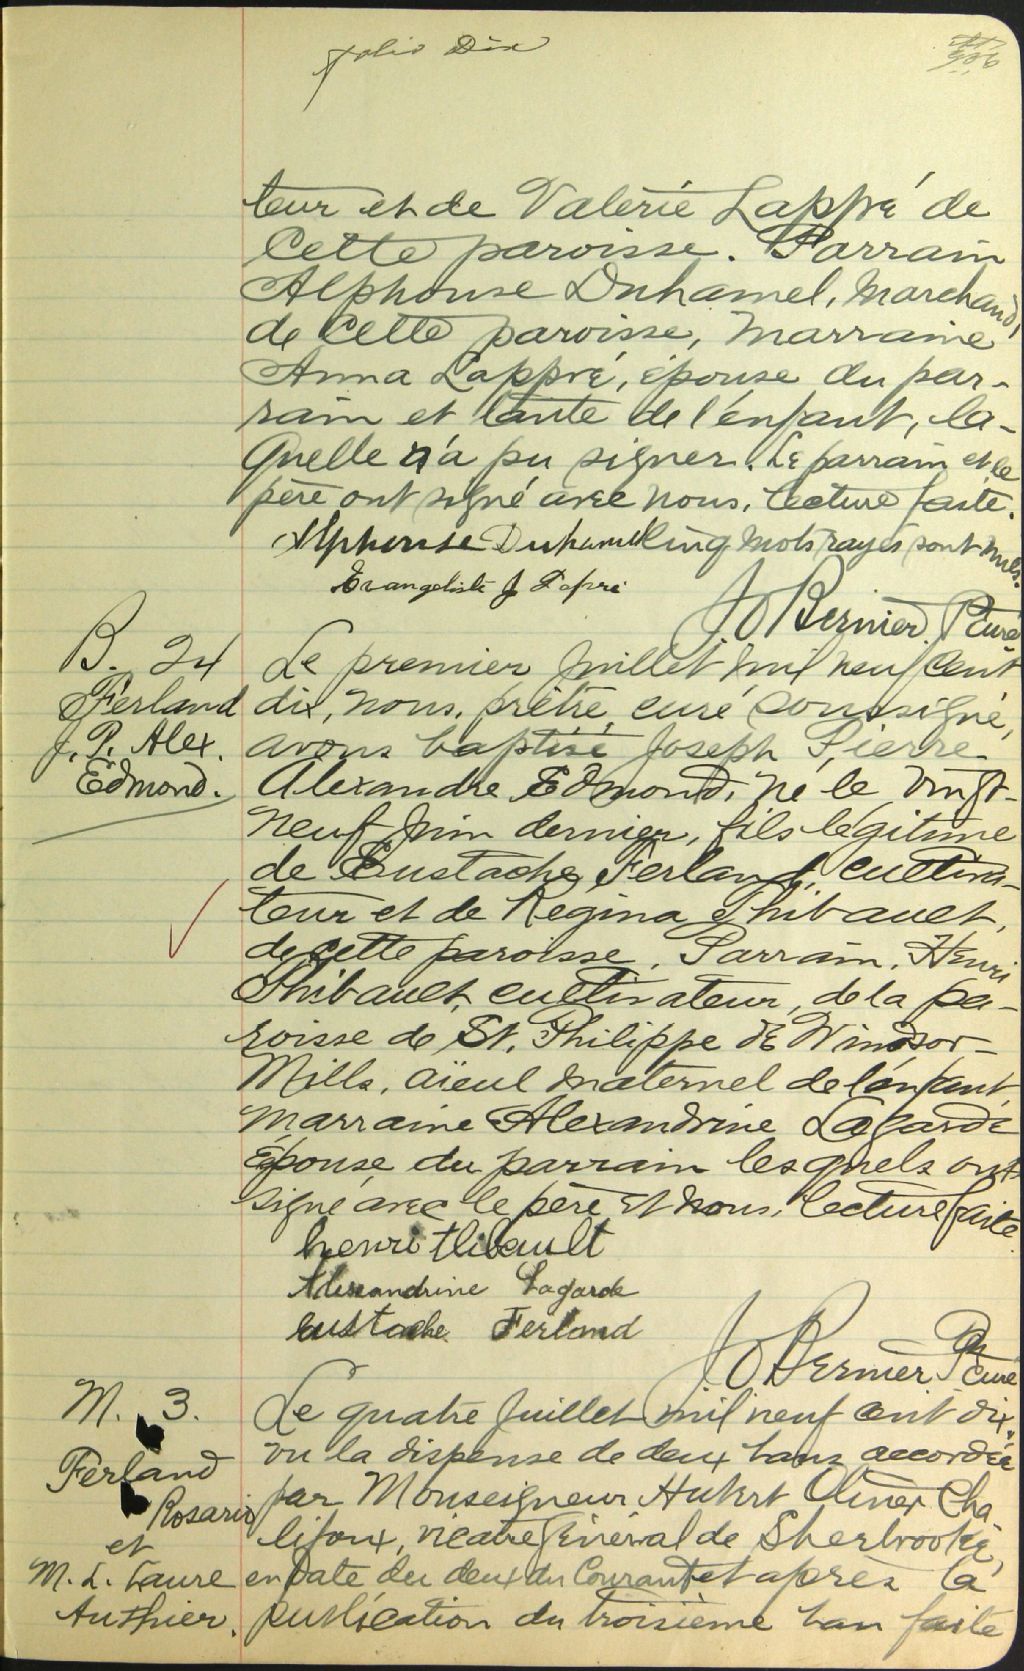 folio Dix
teur et de Valérie Lappré de
Cette paroisse. Parrain
Alphonse Duhamel, Marchand,
de Cette paroisse, marraine
Anna Lappré, épouse du par-
rain et tante de l'enfant, la-
quelle n'a pu signer. Le parrain et le
père ont signé avec nous. Lecture faite.
Alphonse Duhamel Cinq mots rayés sont nuls.
Evangeliste J Lapré
J O Bernier Ptre Curé
B. 24
Ferland
J. P. Alex.
Edmond.
Le premier Juillet mil neuf cent
dix, nous, prêtre, curé soussigné,
avons baptisé Joseph Pierre
Alexandre Edmond, né le vingt-
neuf Juin dernier, fils légitime
de Eustache Ferland, cultiva-
teur et de Regina Thibault,
de cette paroisse. Parrain, Henri
Thibault, cultivateur, de la pa-
roisse de St. Philippe de Windsor-
Mills, aïeul maternel de l'enfant,
marraine Alexandrine Lagarde
épouse du parrain lesquels ont
signé avec le père et nous. Lecture faite.
henri thibault
Alexandrine Lagarde
Eustache Ferland
J O Bernier Ptre Curé
M. 3.
Ferland
Rosario
et
M. L. Laure
Authier.
Le quatre Juillet mil neuf cent dix,
vu la dispense de deux bans accordée
par Monseigneur Hubert Olivier Cha-
lifoux, vicaire Général de Sherbrooke,
en date du deux du Courant et après la
publication du troisième ban faite